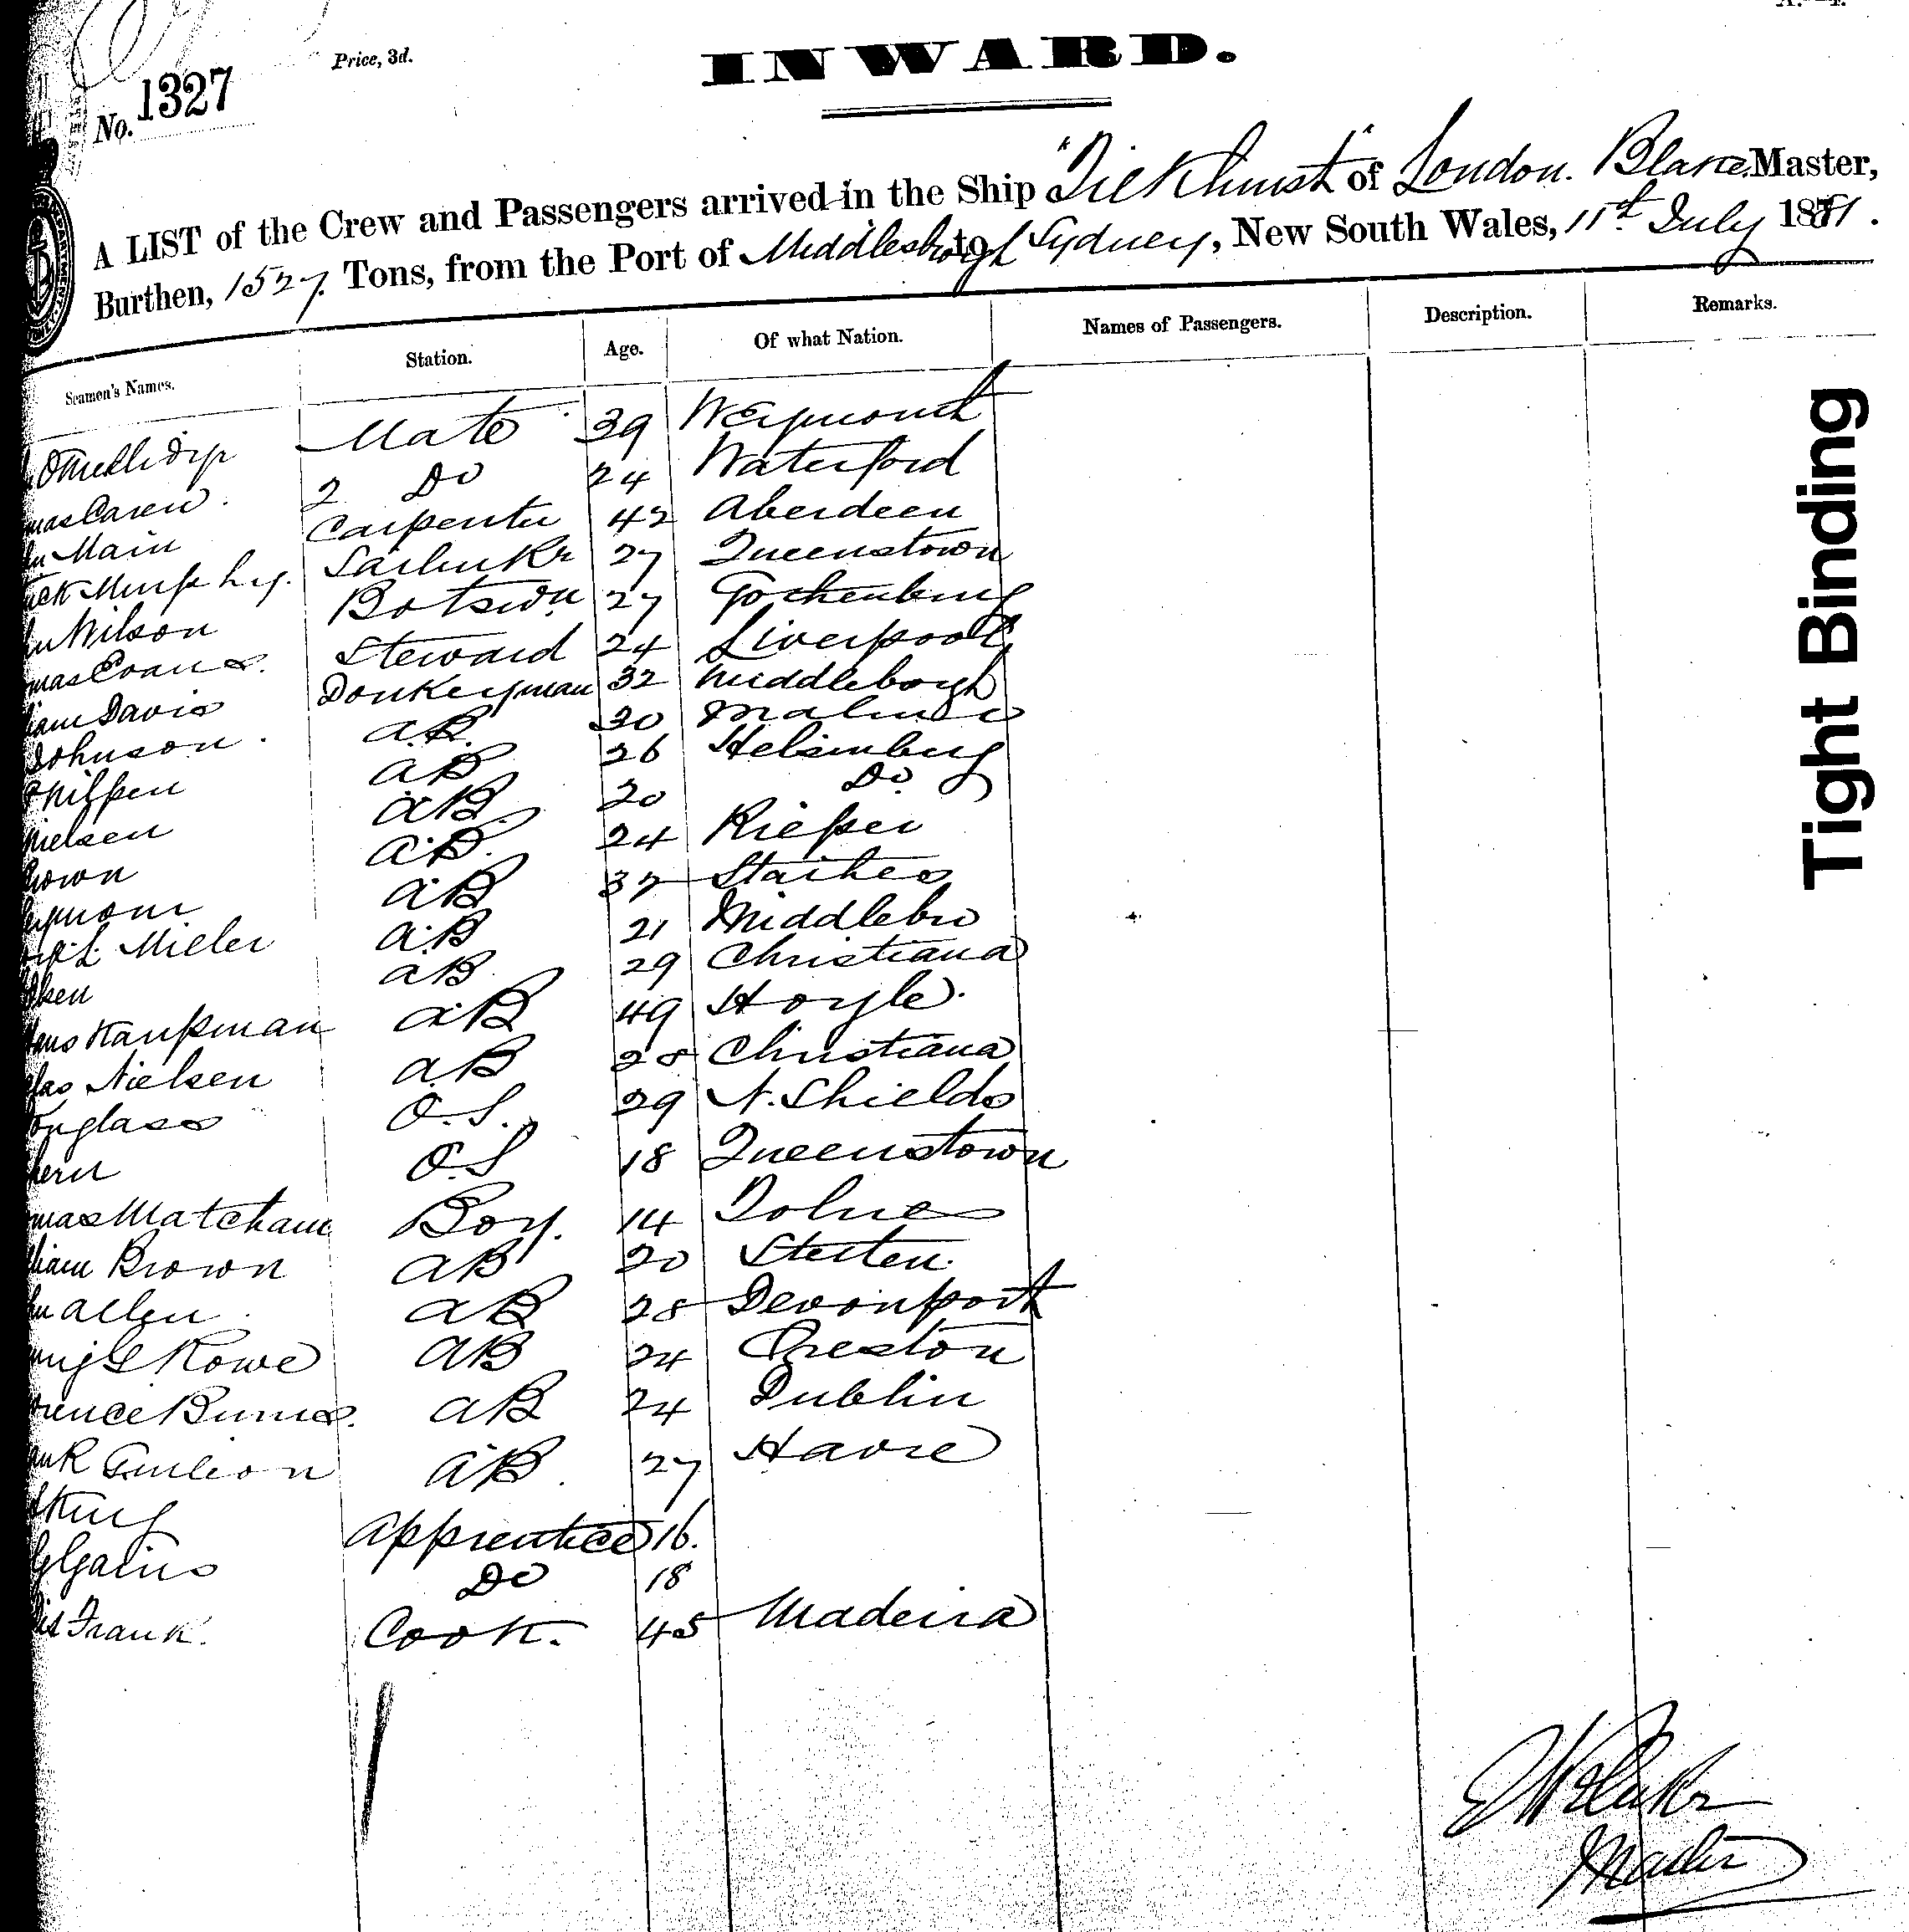 No. 1327
Price, 3d.
INWARD.
A LIST of the Crew and Passengers arrived in the Ship "Tilkhurst" of London. Blake Master,
Burthen, 1527. Tons, from the Port of Middlesbrogh to Sydney, New South Wales, 11th July 1881.
Seamen's Names. Station. Age. Of what Nation. Names of Passengers. Description. Remarks.
Mate 39 Weymouth
mas Caren. 2 Do 24 Waterford
Main Carpenter 42 Aberdeen
ick Murphey. Sailmkr 27 Queenstown
Wilson Botswn 27 Gothenburg
mas Evans. Steward 24 Liverpool
iam Davis Donkeyman 32 Middleborgh
Johnson. A.B. 30 Malmo
A.B 26 Helsinburg
Nielsen A.B. 20 Do
rown A.B. 24
A.B 37 Staithes
L Miller A.B 21 Middlebro
lsen A.B 29 Christiana
Kaufman A.B 49 Hoyle.
Nielsen A.B 28 Christiana
ouglass O.S. 29 N. Shields
hern O.S 18 Queenstown
mas Matcham Boy. 14
liam Brown AB 20 Stetten.
Allen AB 28 Devonport
Rowe AB 24 Preston
rence Burns. AB 24 Dublin
ank AB 27 Havre
King Apprentice 16.
Do 18
Frank. Cook. 45 Madeira
Master
Tight Binding